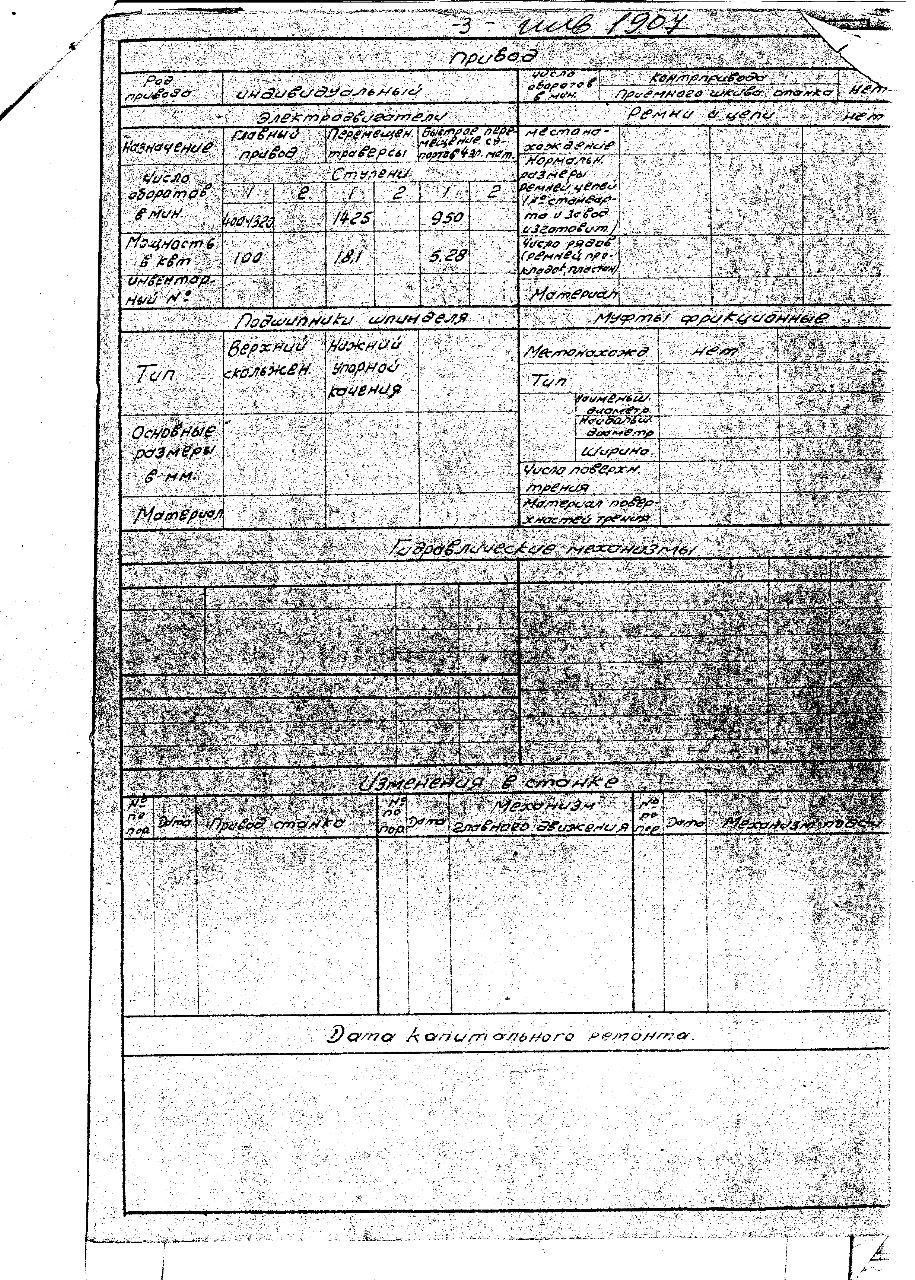 -3- инв 1907
Привод
Род привода
индивидуальный
Число оборотов в мин.
Контрпривода
Приемного шкива станка
нет
Электродвигатели
Ремни и цепи
нет
Назначение
Главный привод
Перемещен. траверсы
Быстрое перемещение суппортов 4 эл. мот.
Местонахождение
Число оборотов в мин.
Ступени
1 2 1 2 1 2
1425
950
Нормальн. размеры ремней, цепей (№ стандарта и завод изготовит.)
Мощность в квт
100
18.1
5.28
Число рядов (ремней, прокладов, пластин)
Инвентарный №
Материал
Подшипники шпинделя
Муфты фрикционные
Тип
Верхний скольжен.
Нижний упорной качения
Местонахожд
нет
Тип
Наименьш. диаметр
Наибольш. диаметр
Ширина
Основные размеры в мм.
Число поверхн. трения
Материал
Материал поверхностей трения
Гидравлические механизмы
Изменения в станке
№ по пор.
Дата
Привод станка
№ по пор.
Дата
Механизм главного движения
№ по пор.
Дата
Механизм подачи
Дата капитального ремонта.